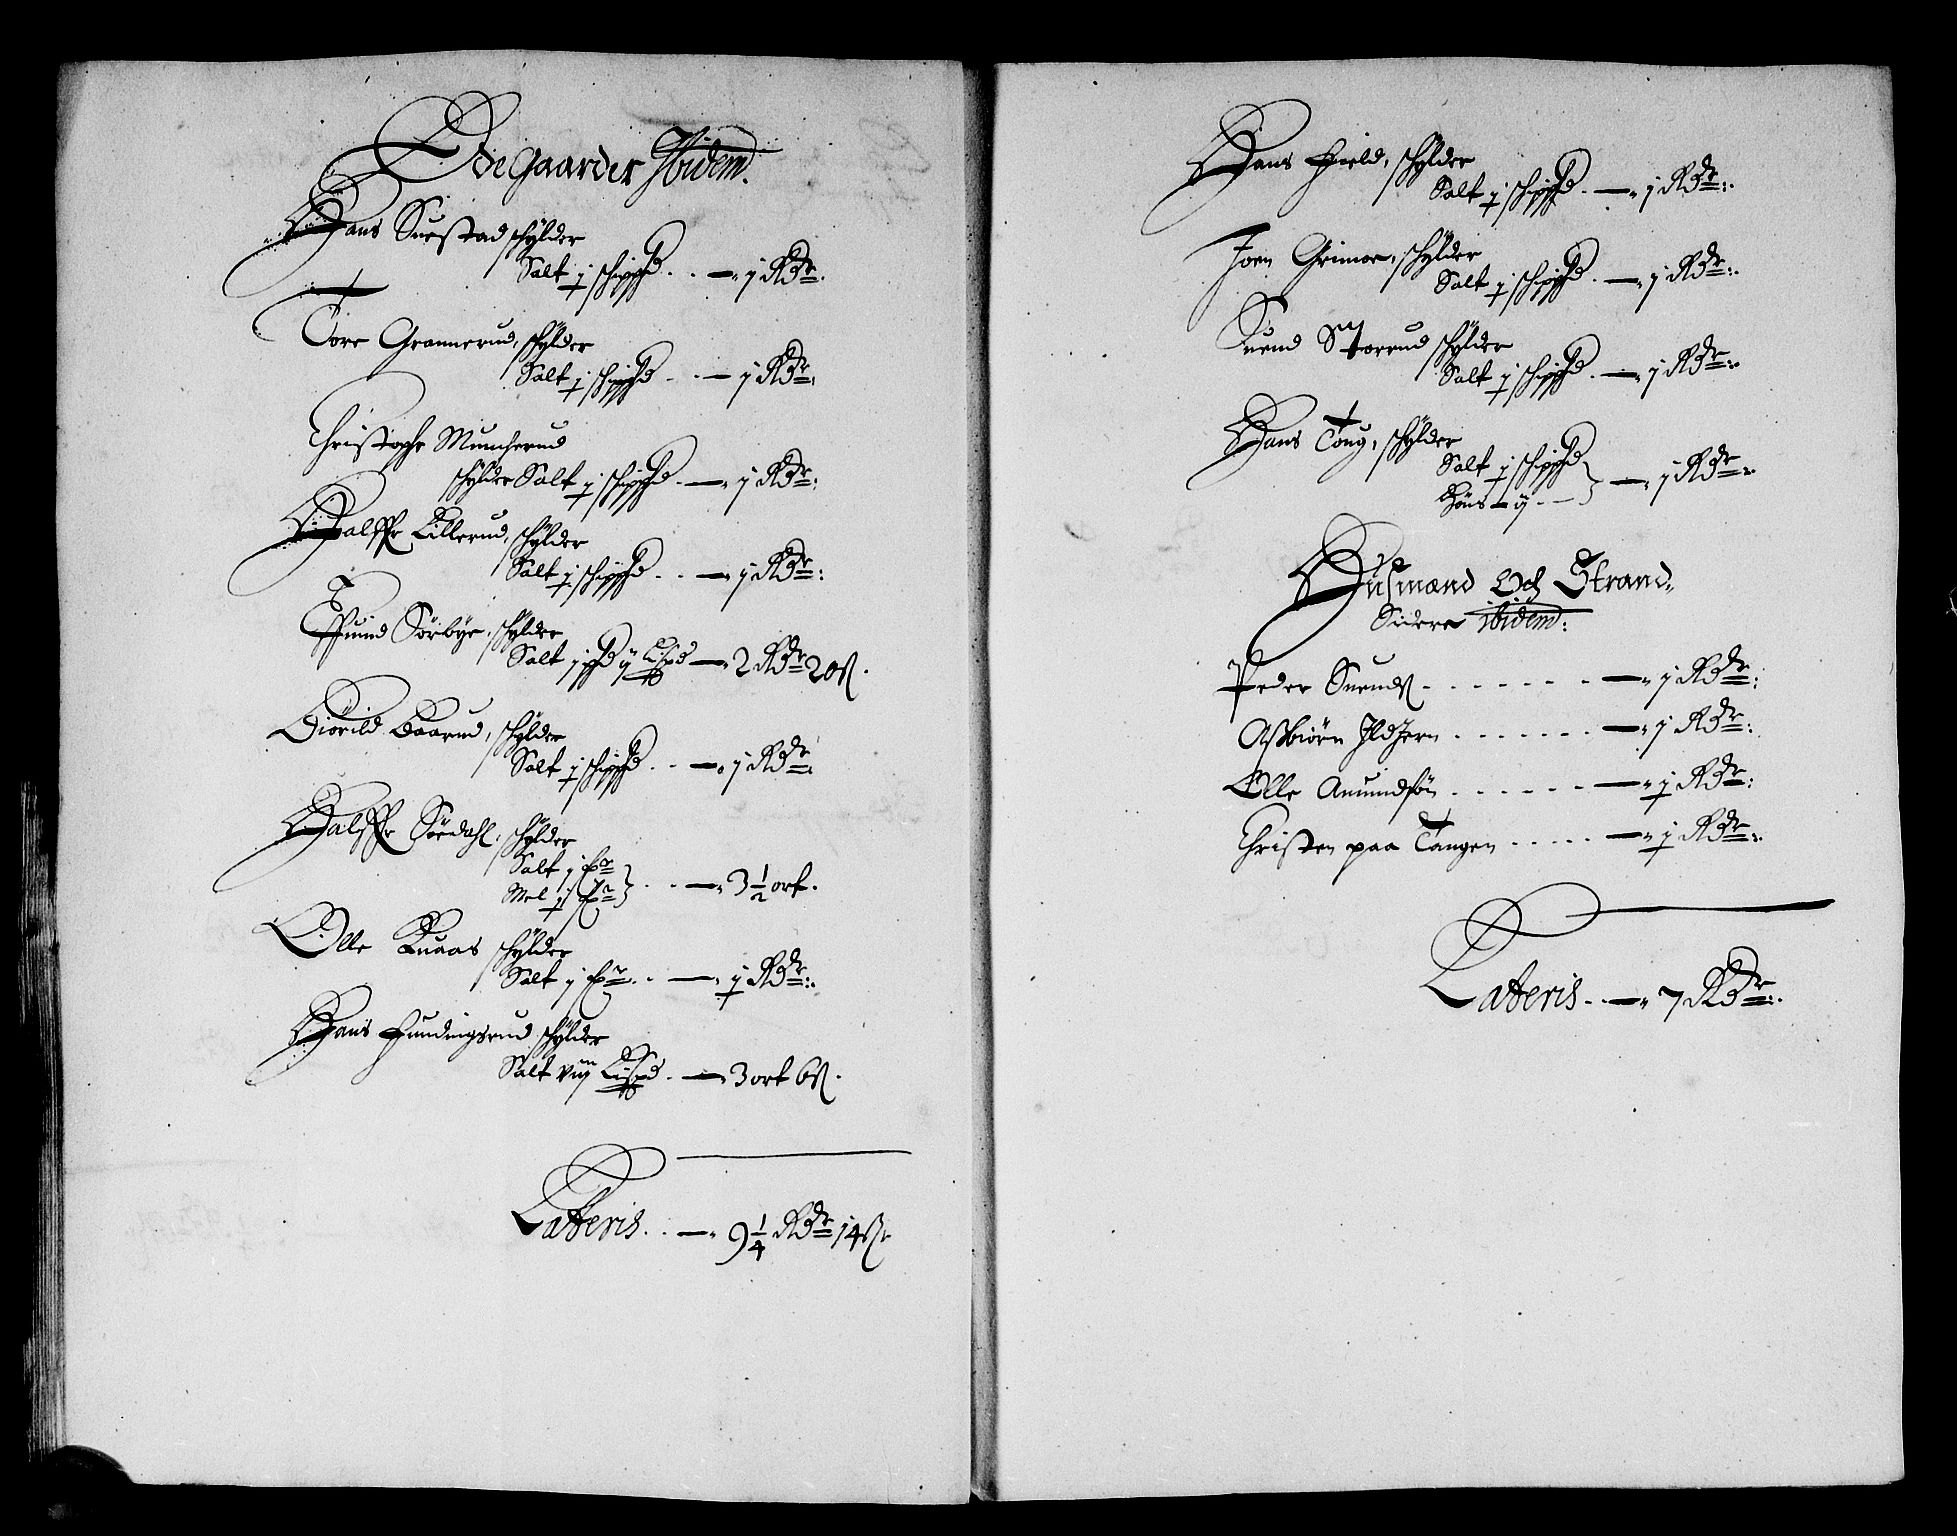 Ødegaarder Ibidem.
Hans Suestad schÿlder
Salt j schippd . . — j Rdr:
Tore Grannerud, schÿlder
Salt j schippd . . — j Rdr:
Christopher Muncherud
schÿlder Salt j schippd . — j Rdr:
Halffr Lillerud, schÿlder
Salt j schippd . . — j Rdr:
Effuind Sørbÿe, schÿlder
Salt j pd ij Lispd — 2 Rdr 20 ß.
Giørild Baarud, schÿlder
Salt j schippd . . — j Rdr:
Halffr Sørdahl, schÿlder
Salt j fr
Mel j fr } . . — 3 1/2 ort.
Olle Ruaas schÿlder
Salt j fr . . — j Rdr:
Hans Hundingsrud schÿlder
Salt viij Lispd . — 3 ort 6 ß.
Latteris . . — 9 1/4 Rdr 14 ß
Hans Field, schÿlder
Salt j schippd . — j Rdr:
Joen Grimoe, schÿlder
Salt j schippd . — j Rdr:
Suend Storrud schÿlder
Salt j schippd . — j Rdr:
Hans Toug, schÿlder
Salt j schippd
Høns — ij . — } — j Rdr:
Husmænd Och Strand-
Sidere Ibidem:
Peder Suendß . . . . . . — j Rdr:
Assbiørn Ildjern . . . . . . — j Rdr:
Olle Amundsøn . . . . . . — j Rdr:
Christen paa Tangen . . . . . — j Rdr:
Latteris . . — 7 Rdr: